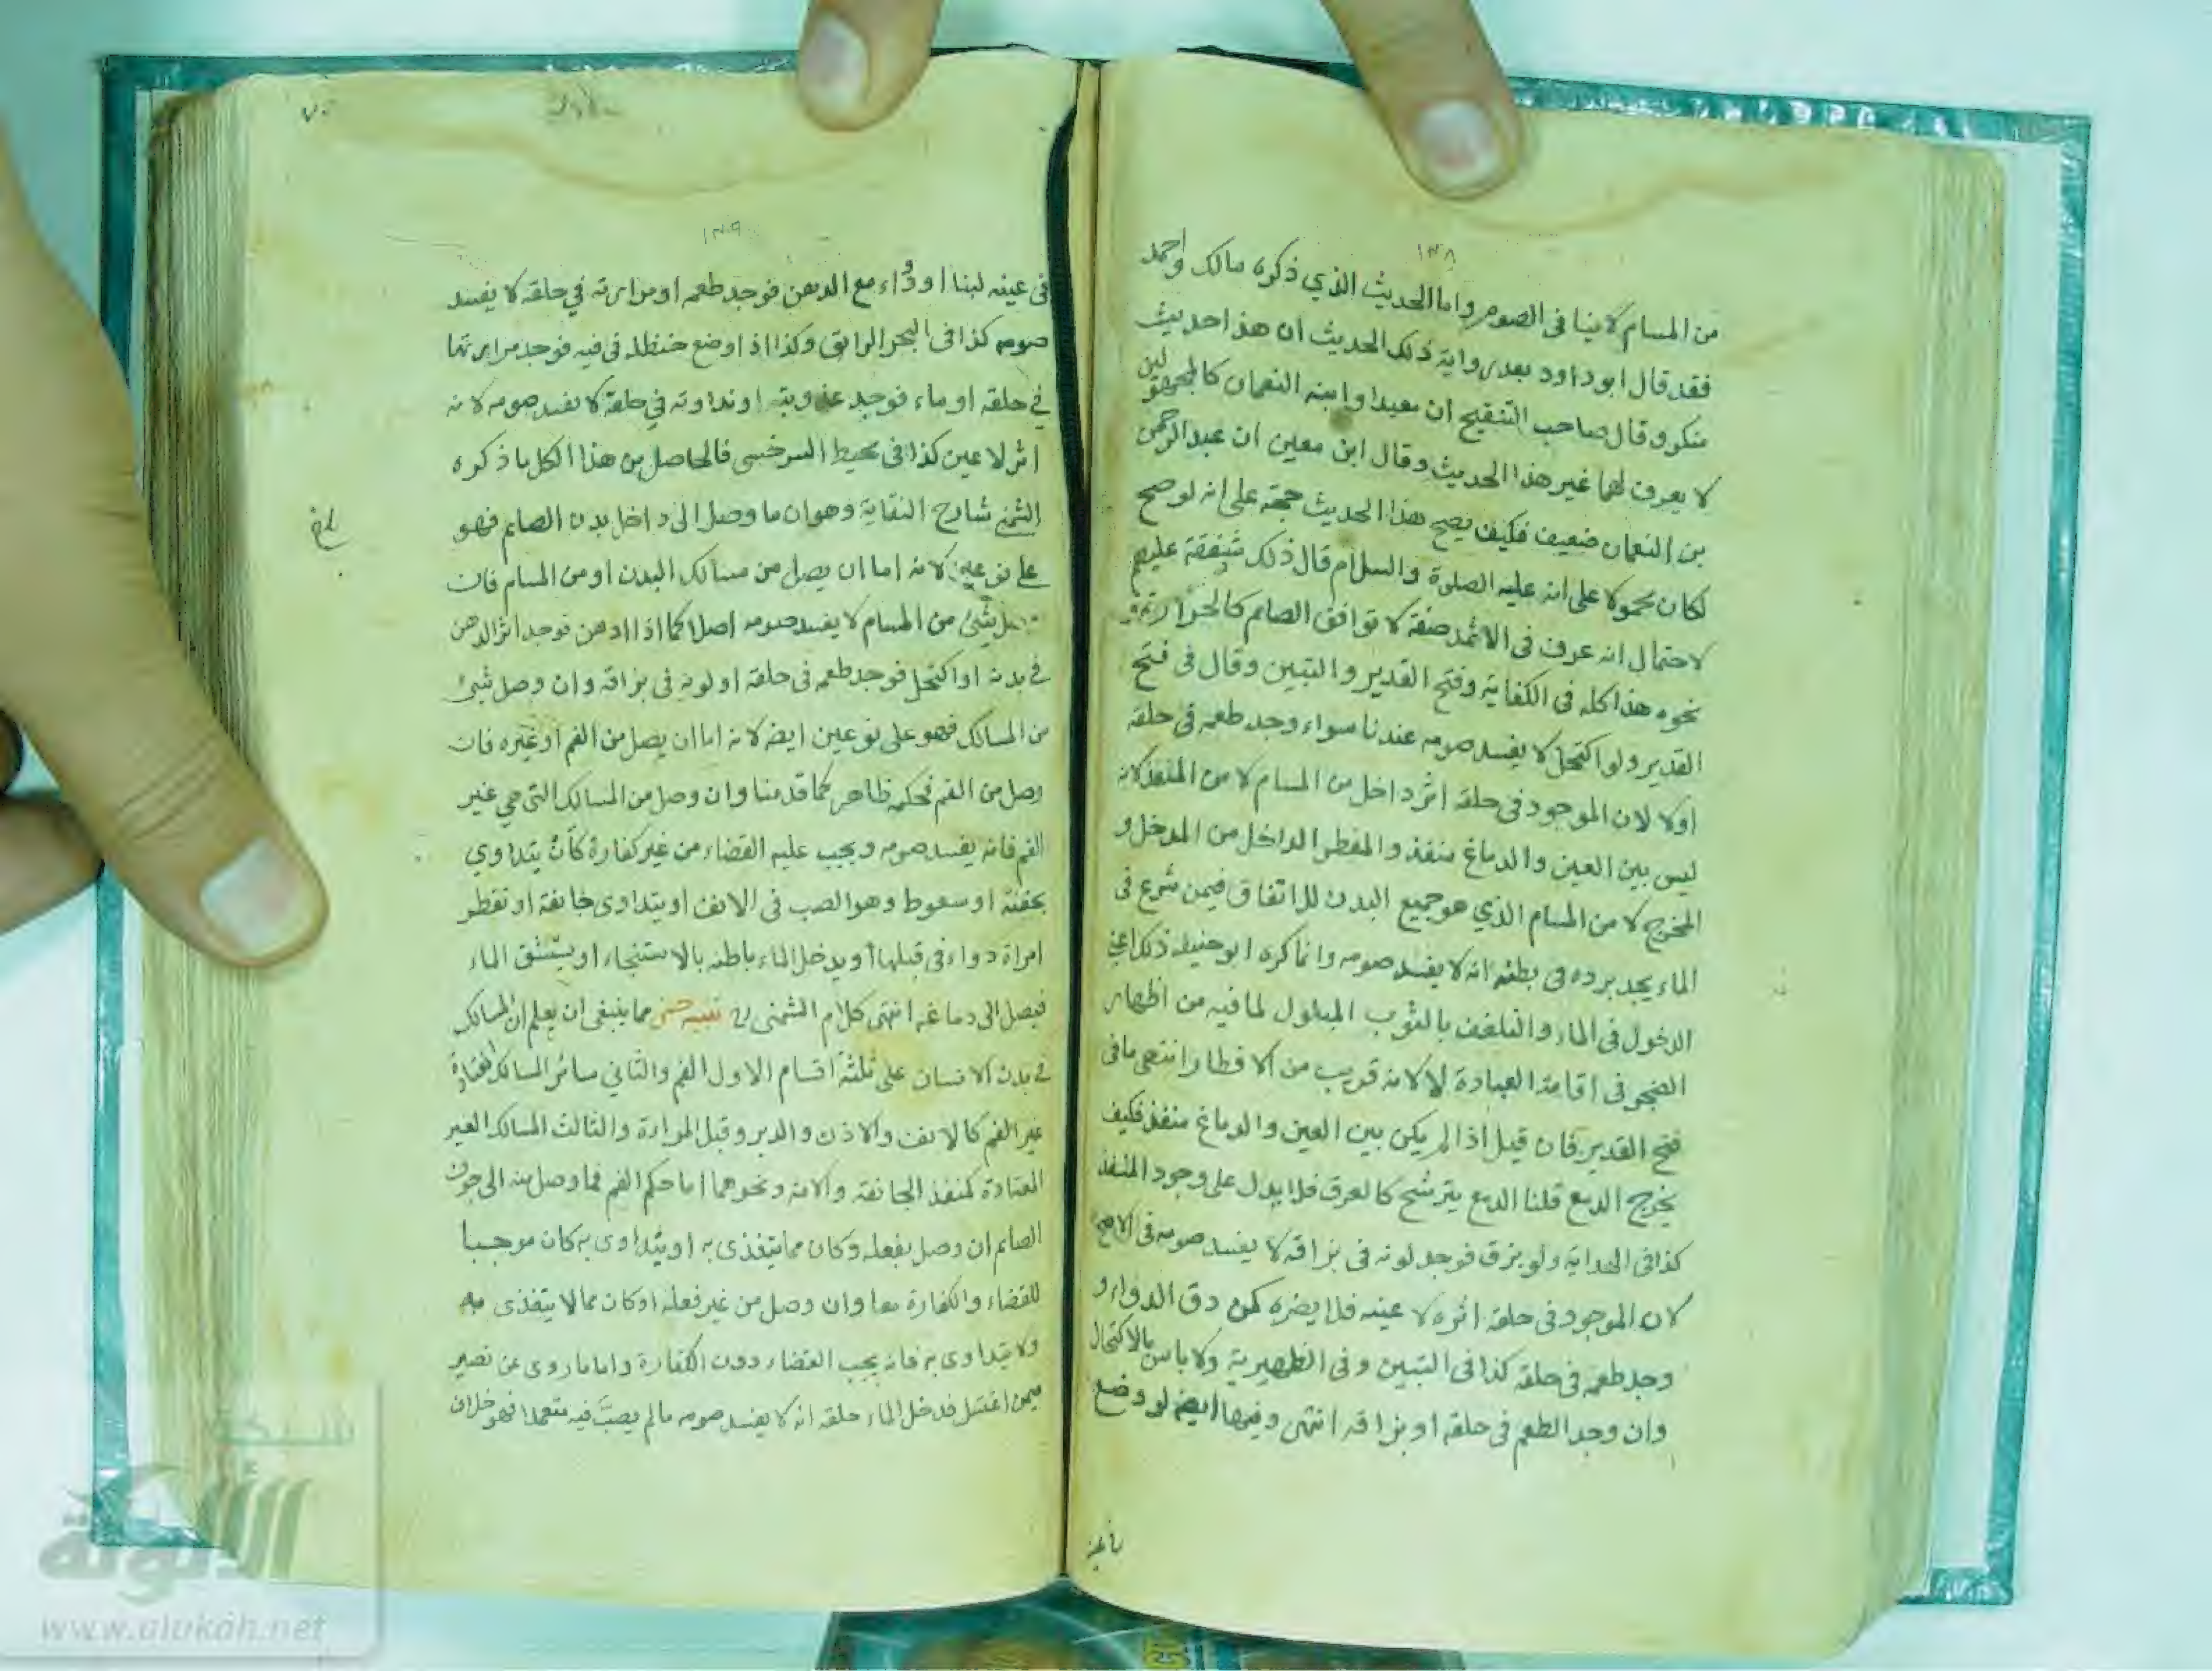 ١٣٨
من المسام لا ينافى الصوم واما الحديث الذي ذكره مالك واحمد
فقد قال ابو داود بعد رواية ذلك الحديث ان هذا حديث
منكر وقال صاحب التنقيح ان معبدا وابنه النعمان كالمجهولين
لا يعرف لهما غير هذا الحديث وقال ابن معين ان عبد الرحمن
بن النعمان ضعيف فكيف يصح هذا الحديث حجة على انه لو صح
لكان محمولا على انه عليه الصلوة والسلام قال ذلك شفقة عليهم
لاحتمال انه عرف فى الاثمد صفة لا توافق الصايم كالحرارة
نحوه هذا كله فى الكفاية وفتح القدير والتبين وقال فى فتح
القدير ولو اكتحل لا يفسد صومه عندنا سواء وجد طعمه فى حلقه
اولا لان الموجود فى حلقه اثر داخل من المسام لا من المنفذ لانه
ليس بين العين والدماغ منفذ والمفطر الداخل من المدخل و
المخرج لا من المسام الذي هو جميع البدن للاتفاق فيمن شرع فى
الماء يجد برده فى بطنه انه لا يفسد صومه وانما كره ابو حنيفة ذلك اعني
الدخول فى الماء والتلفف بالثوب المبلول لما فيه من اظهار
الضجر فى اقامة العبادة لا لانه قريب من الافطار انتهى ما فى
فتح القدير فان قيل اذا لم يكن بين العين والدماغ منفذ فكيف
يخرج الدمع قلنا الدمع يترشح كالعرق فلا يدل على وجود المنفذ
كذا فى الهداية ولو بزق فوجد لونه فى بزاقه لا يفسد صومه فى الاصح
لان الموجود فى حلقه اثره لا عينه فلا يضره كمن دق الدواء و
وجد طعمه فى حلقه كذا فى التبين وفى الظهيرية ولا باس بالاكتحال
وان وجد الطعم فى حلقه او بزاقه انتهى وفيها ايضا لو وضع
١٣٩
فى عينه لبنا او دواء مع الدهن فوجد طعمه او مرارته في حلقه لا يفسد
صومه كذا فى البحر الرايق وكذا اذا وضع حنظلة فى فيه فوجد مرارتها
في حلقه او ماء فوجد عذوبته او نداوته في حلقه لا يفسد صومه لانه
اثر لا عين كذا فى محيط السرخسى فالحاصل من هذا الكل ما ذكره
الشمنى شارح النقاية وهو ان ما وصل الى داخل بدن الصايم فهو
على نوعين لانه اما ان يصل من مسالك البدن او من المسام فان
وصل شيئ من المسام لا يفسد صومه اصلا كما اذا ادهن فوجد اثر الدهن
في بدنه او اكتحل فوجد طعمه فى حلقه او لونه في بزاقه وان وصل شيئ
من المسالك فهو على نوعين ايضه لانه اما ان يصل من الفم او غيره فان
وصل من الفم فحكمه ظاهر كما قدمنا وان وصل من المسالك التى هي غير
الفم فانه يفسد صومه ويجب عليه القضاء من غير كفارة كأن يتداوي
بحقنة او سعوط وهو الصب فى الانف او يتداوى جائفة او تقطر
امراة دواء فى قبلها او يدخل الماء باطنه بالاستنجاء او يستنشق الماء
فيصل الى دماغه انتهى كلام الشمنى تنبيه حسن مما ينبغى ان يعلم ان المسالك
في بدن الانسان على ثلثة اقسام الاول الفم والثاني سائر المسالك المعتادة
غير الفم كالانف والاذن والدبر وقبل المراءة والثالث المسالك الغير
المعتادة كمنفذ الجائفة والامه ونحوهما اما حكم الفم فما وصل منه الى جوف
الصايم ان وصل بفعله وكان مما يتغذى به او يتداوى به كان موجبا
للقضاء والكفارة معا وان وصل من غير فعله او كان مما لا يتغذى به
ولا يتداوى به فانه يجب القضاء دون الكفارة واما ما روى عن نصير
فيمن اغتسل فدخل الماء حلقه انه لا يفسد صومه ما لم يصبّ فيه متعمدا فهو خلاف
شبكة
الألوكة
www.alukah.net